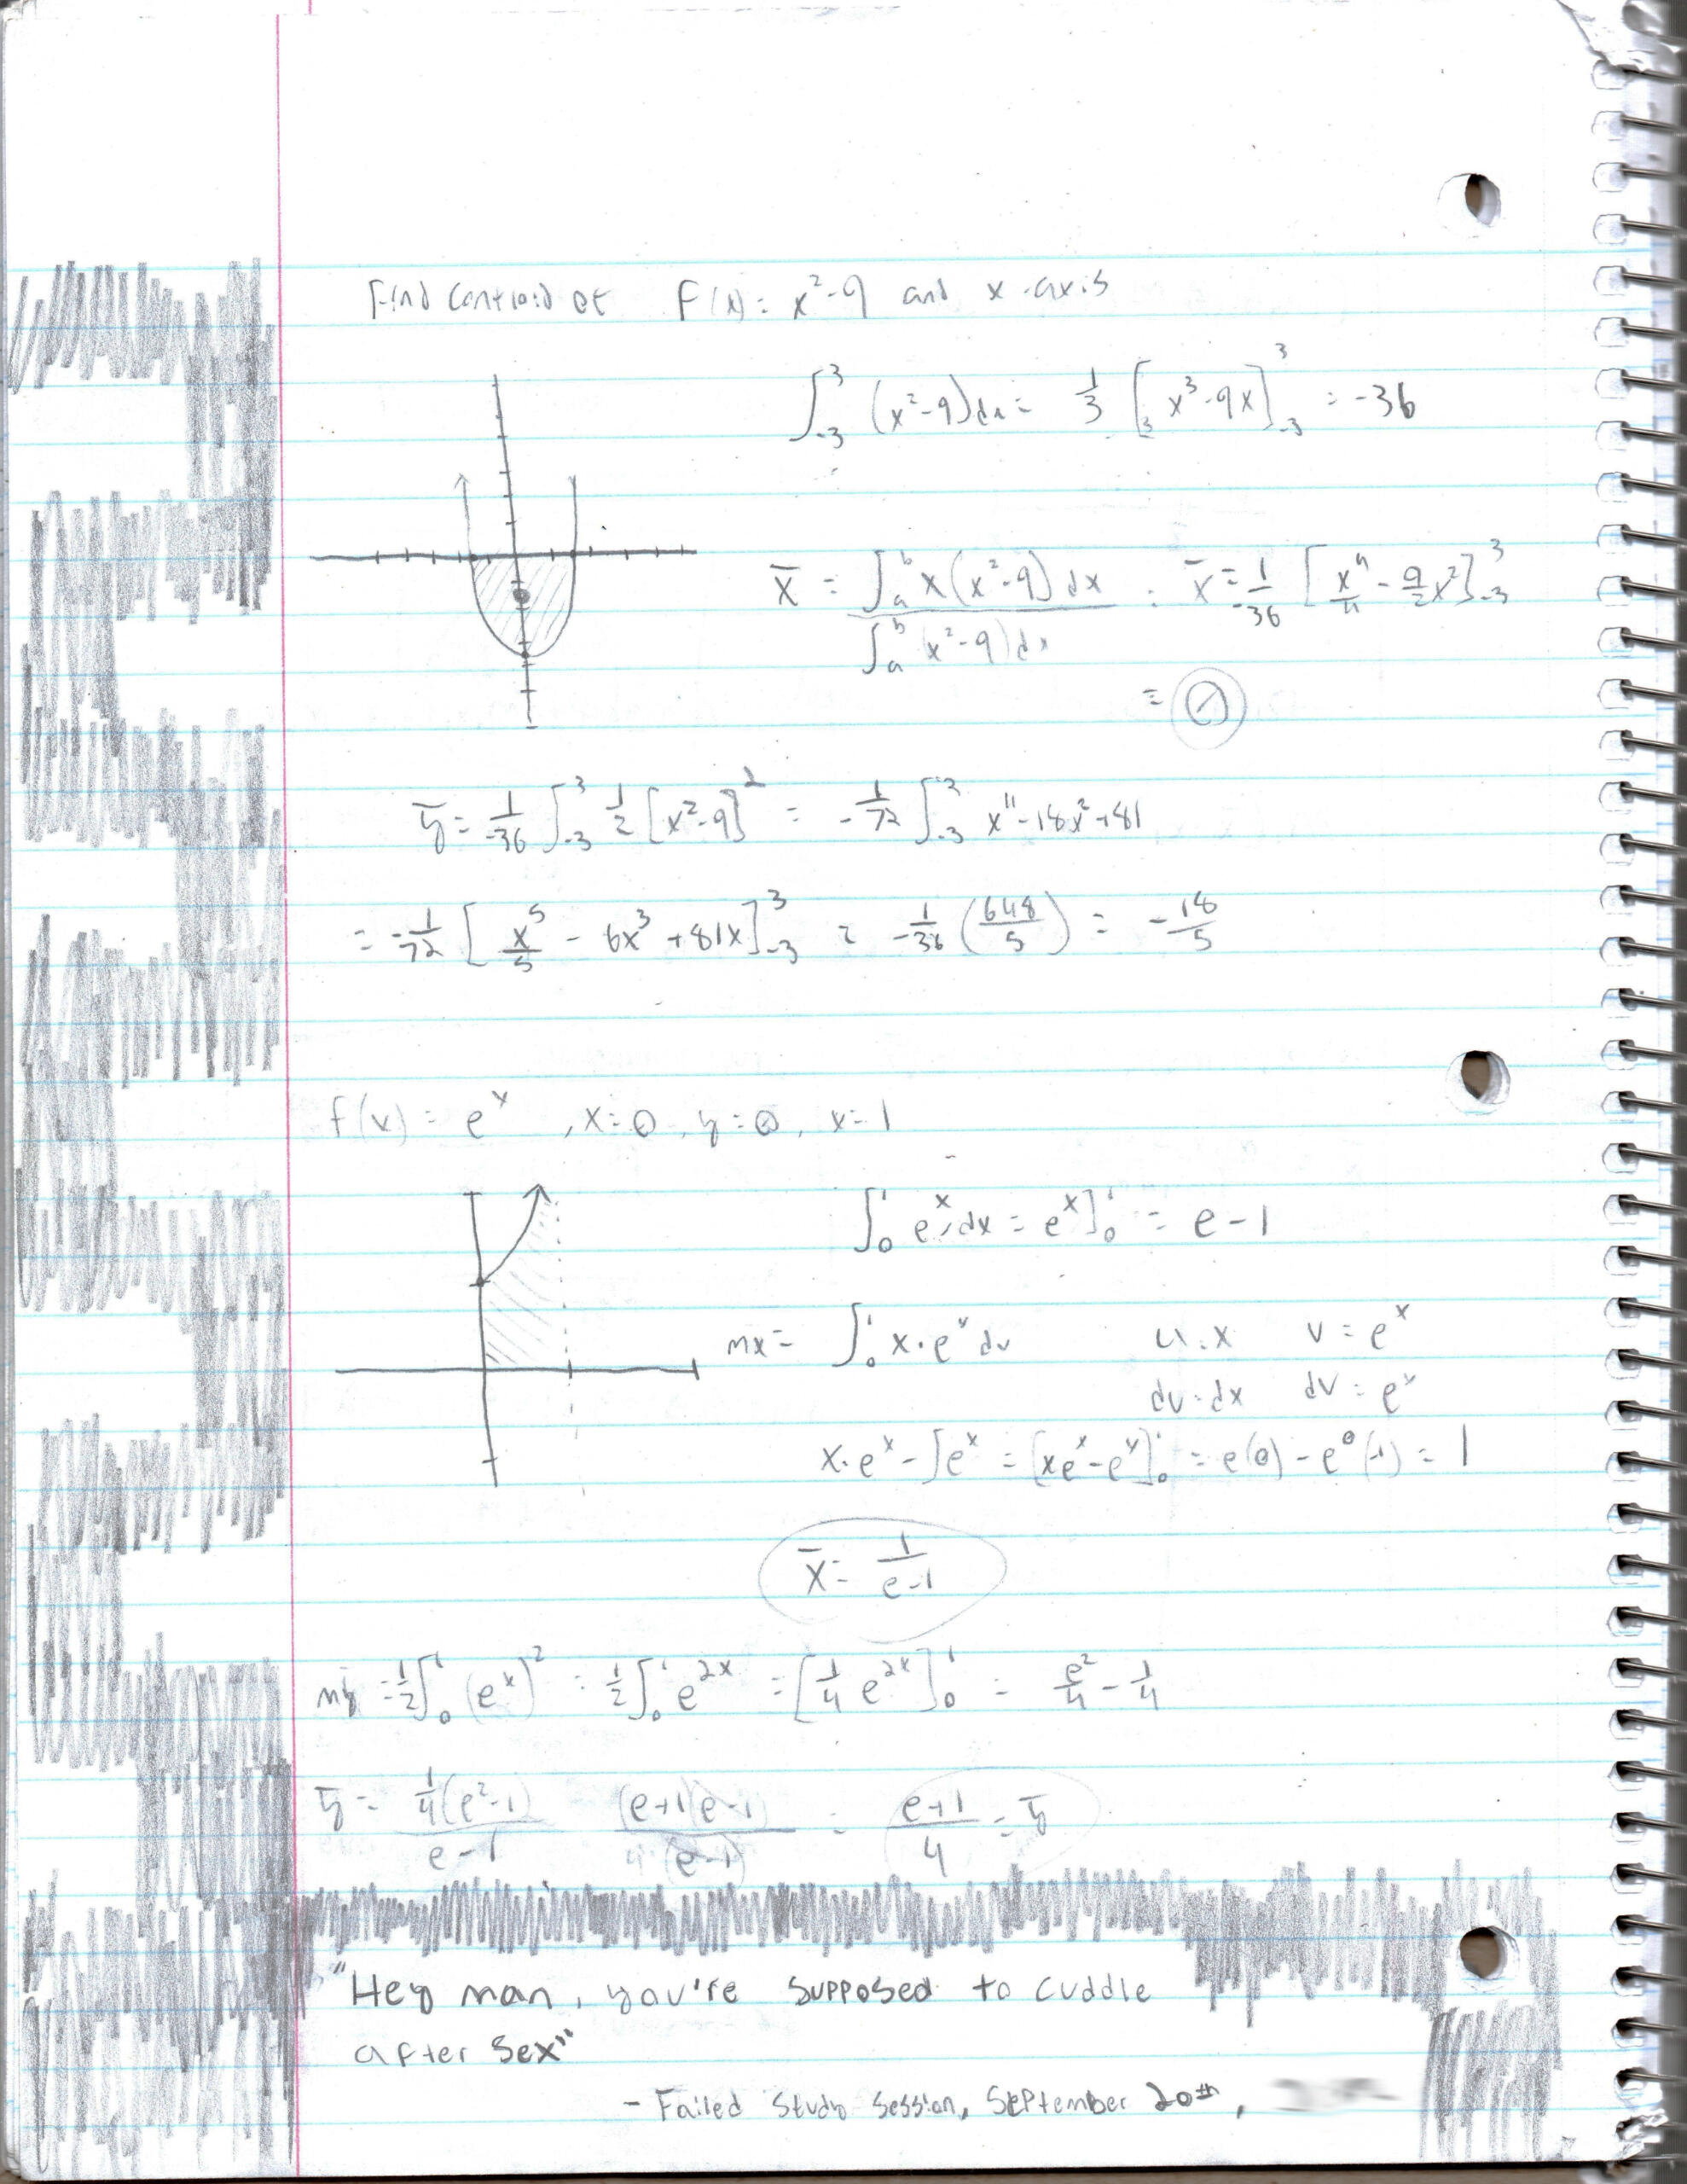 Find Centroid of F(x) = x²-9 and x-axis
∫₋₃³ (x²-9)dx = 1/3 [x³/3 - 9x]₋₃³ = -36
x̄ = ∫ₐᵇ x(x²-9)dx / ∫ₐᵇ (x²-9)dx = x̄ = 1/-36 [x⁴/4 - 9/2 x²]₋₃³
= 0
ȳ = 1/-36 ∫₋₃³ 1/2 [x²-9]² = -1/72 ∫₋₃³ x⁴-18x²+81
= -1/72 [x⁵/5 - 6x³ + 81x]₋₃³ = -1/36 (648/5) = -18/5
f(x) = eˣ, x=0, y=0, x=1
∫₀¹ eˣ dx = eˣ]₀¹ = e-1
mx = ∫₀¹ x·eˣ dx u=x v=eˣ
du=dx dv=eˣ
x·eˣ - ∫eˣ = [xeˣ-eˣ]₀¹ = e(0) - e⁰(-1) = 1
x̄ = 1/e-1
my = 1/2 ∫₀¹ (eˣ)² = 1/2 ∫₀¹ e²ˣ = [1/4 e²ˣ]₀¹ = e²/4 - 1/4
ȳ = 1/4(e²-1) / e-1 (e+1)(e-1) / 4(e-1) = e+1/4 = ȳ
"Hey man, you're supposed to cuddle
after sex"
- Failed Study Session, September 20th,